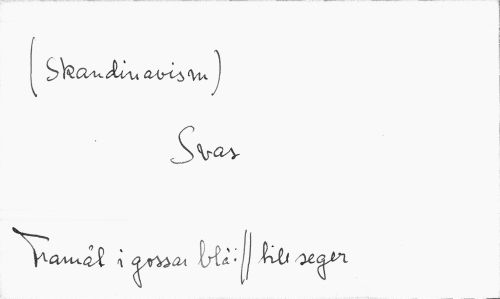 (Skandinavism)
Svar
Framåt i gossar blå:// till seger